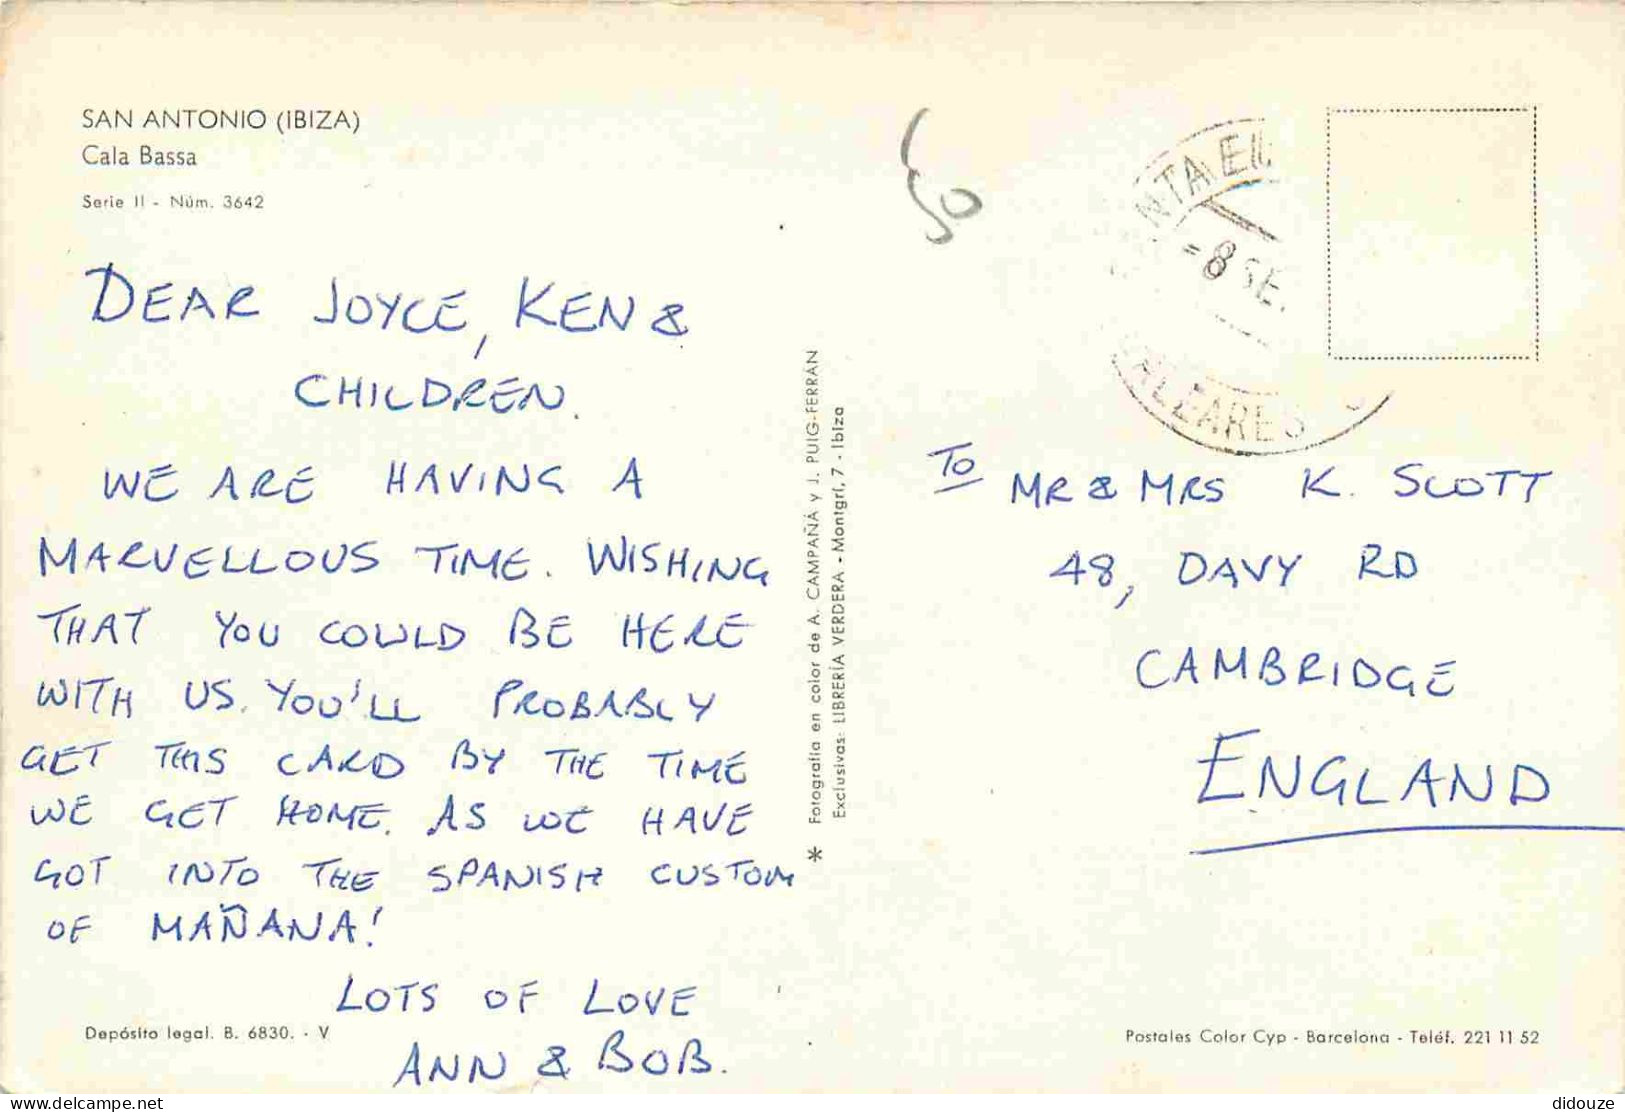 SAN ANTONIO (IBIZA)
Cala Bassa
Serie II - Núm. 3642
DEAR JOYCE, KEN &
CHILDREN.
WE ARE HAVING A
MARVELLOUS TIME. WISHING
THAT YOU COULD BE HERE
WITH US. YOU'LL PROBABLY
GET THIS CARD BY THE TIME
WE GET HOME. AS WE HAVE
GOT INTO THE SPANISH CUSTOM
OF MAÑANA!
LOTS OF LOVE
ANN & BOB.
Depósito legal. B. 6830. - V
Fotografía en color de A. CAMPAÑÁ y J. PUIG-FERRÁN
Exclusivas: LIBRERÍA VERDERA - Montgrí, 7 - Ibiza
*
-8 SE.
ALEARES
TO MR & MRS K. SCOTT
48, DAVY RD
CAMBRIDGE
ENGLAND
Postales Color Cyp - Barcelona - Teléf. 221 11 52
delcampe.net
didouze